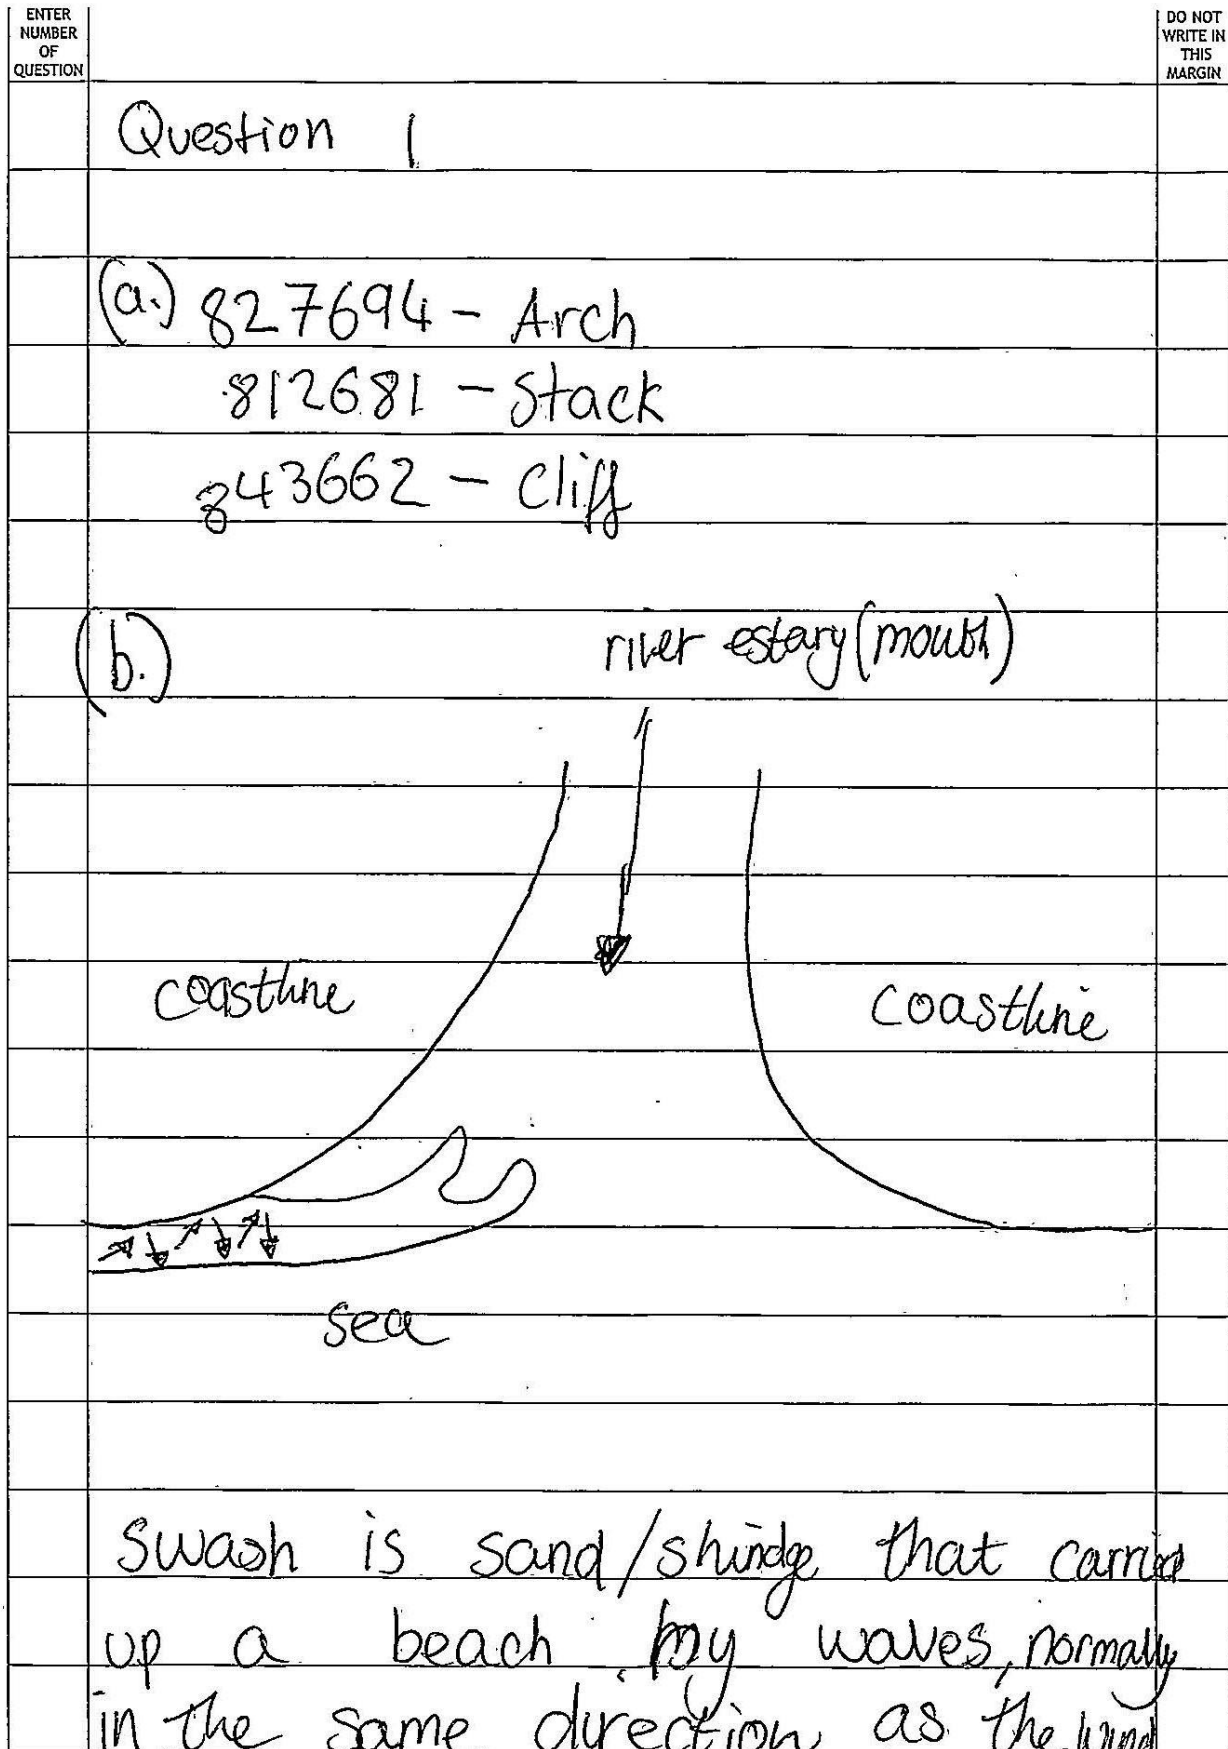 ENTER
NUMBER
OF
QUESTION
DO NOT
WRITE IN
THIS
MARGIN
Question 1
(a.) 827694 - Arch
812681 - Stack
843662 - Cliff
(b.)
river estary (mouth)
coastline
coastline
sea
Swash is sand/shindge that carried
up a beach by waves, normally
in the same direction as the wind